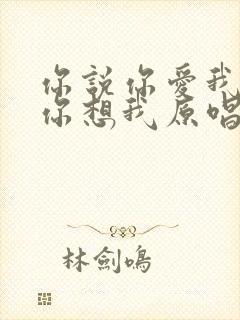 你說你愛我
你想我原唱
林劍鳴